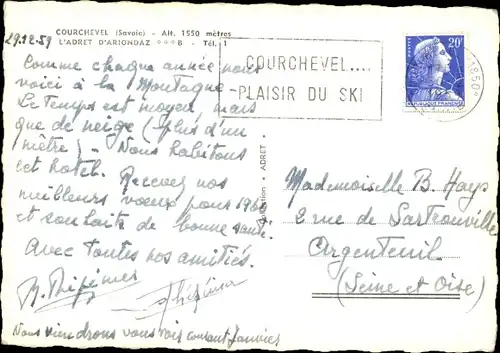 COURCHEVEL (Savoie) - Alt. 1550 mètres
L'ADRET D'ARIONDAZ ***B - Tél. 1
29.12.59
Comme chaque année nous
voici à la Montagne -
Le Temps est moyen mais
que de neige (plus d'un
mètre) - Nous habitons
cet hotel. Recevez nos
meilleurs vœux pour 1960
et souhaits de bonne santé.
Avec toutes nos amitiés.
Nous viendrons vous voir courant Janvier
COURCHEVEL....
PLAISIR DU SKI
20F
REPUBLIQUE FRANÇAISE
ADRET
Mademoiselle B. Hays
2 rue de Sartrouville
Argenteuil
(Seine et Oise)